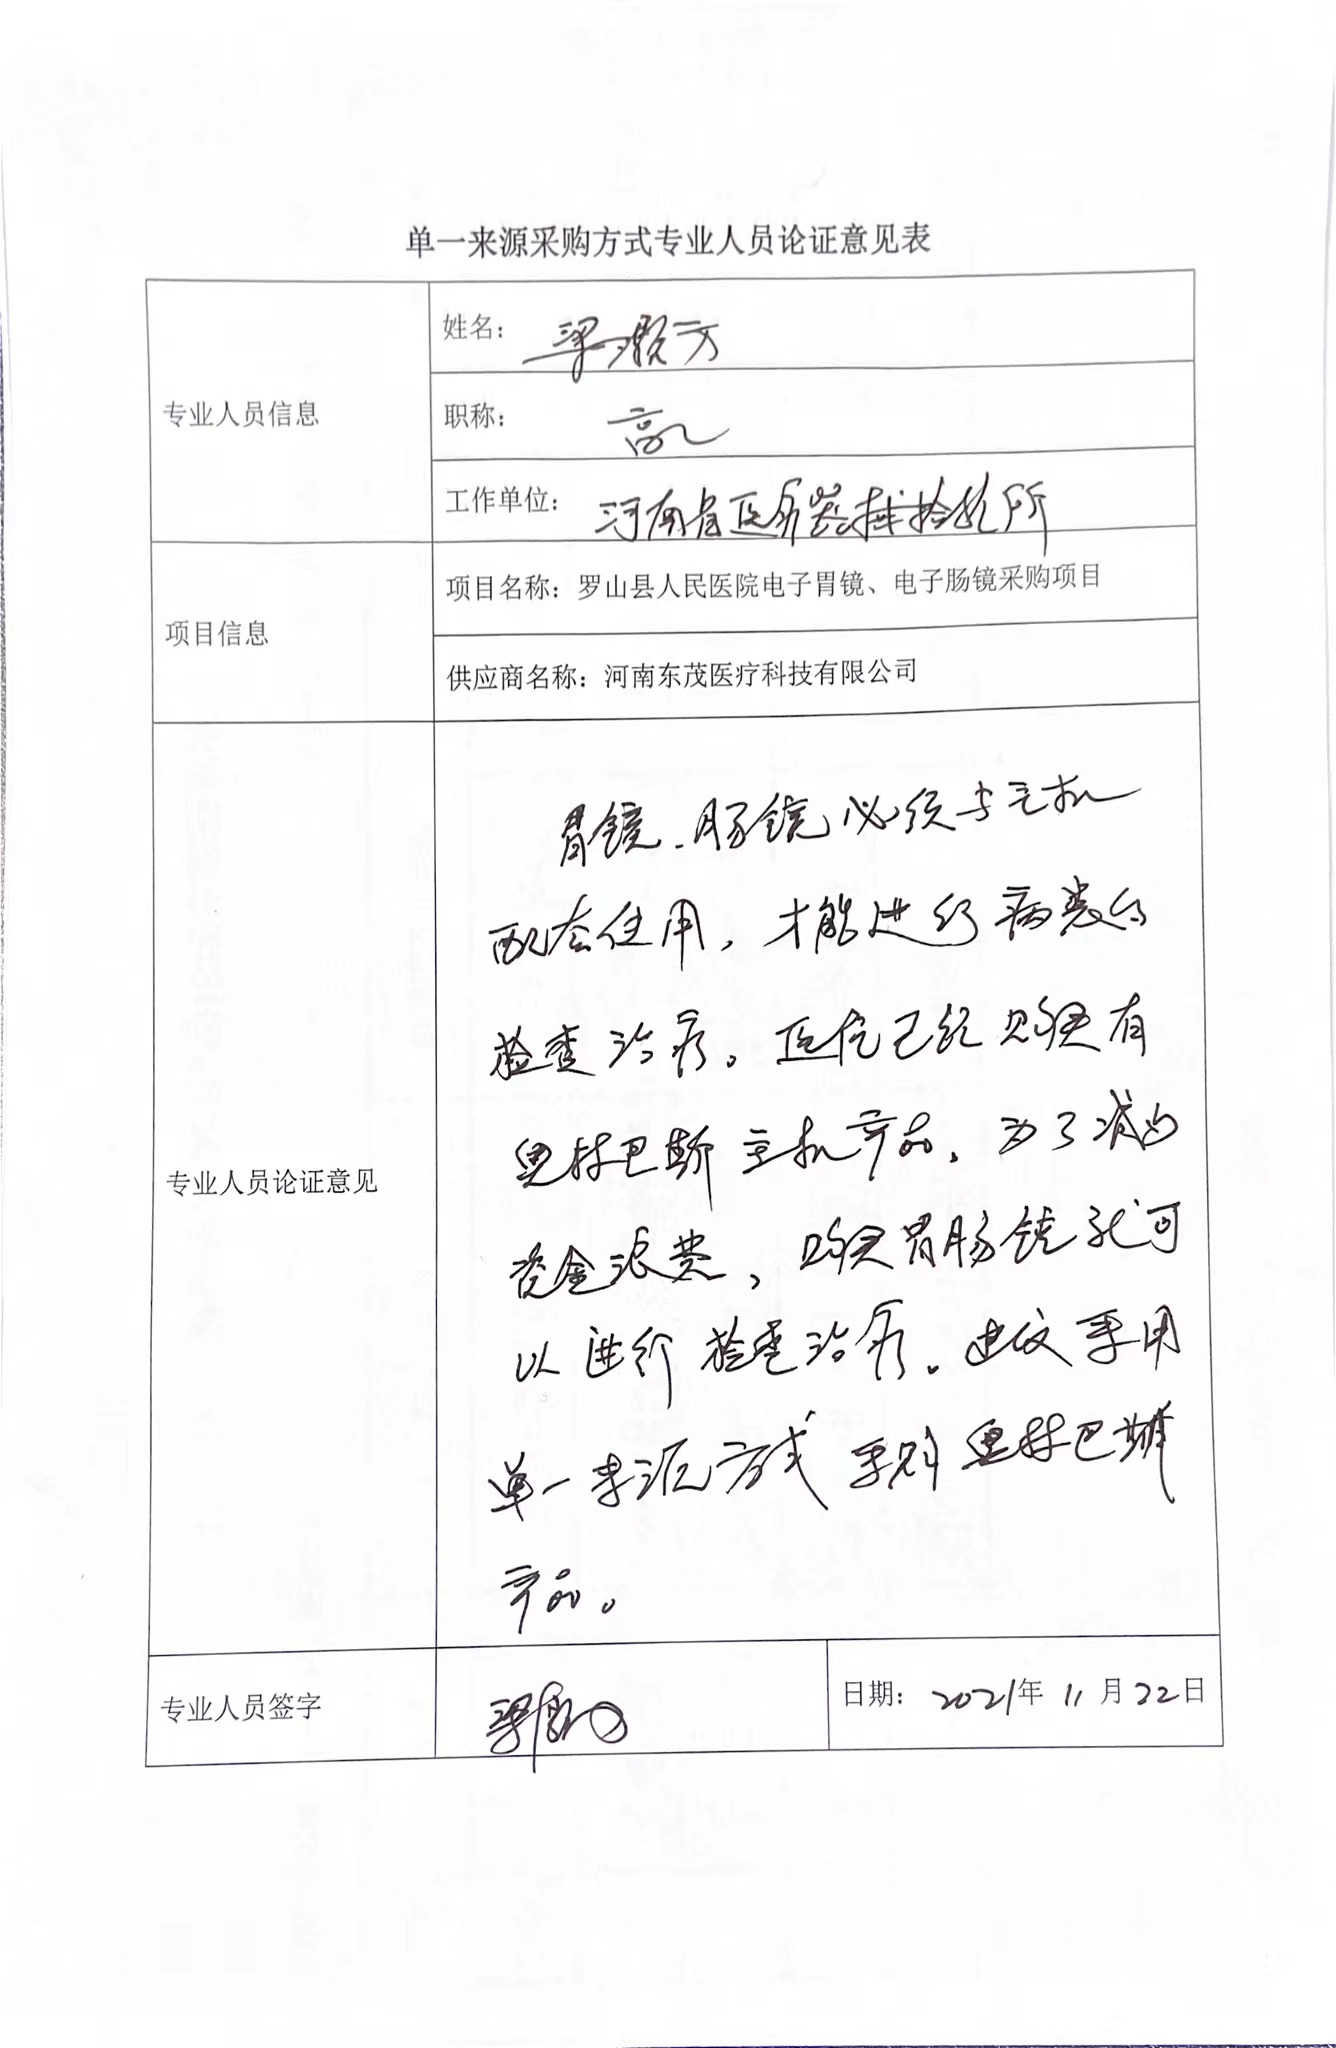 单一来源采购方式专业人员论证意见表
专业人员信息
姓名：梁
职称：高工
工作单位：河南省医疗器械检验所
项目信息
项目名称：罗山县人民医院电子胃镜、电子肠镜采购项目
供应商名称：河南东茂医疗科技有限公司
专业人员论证意见
胃镜、肠镜必须与主机
配套使用，才能进行病类的
检查治疗。医院已经购买有
奥林巴斯主机产品，为了减少
资金浪费，购买胃肠镜就可
以进行检查治疗。建议采用
单一来源方式采购奥林巴斯
产品。
专业人员签字
梁
日期：2021年11月22日